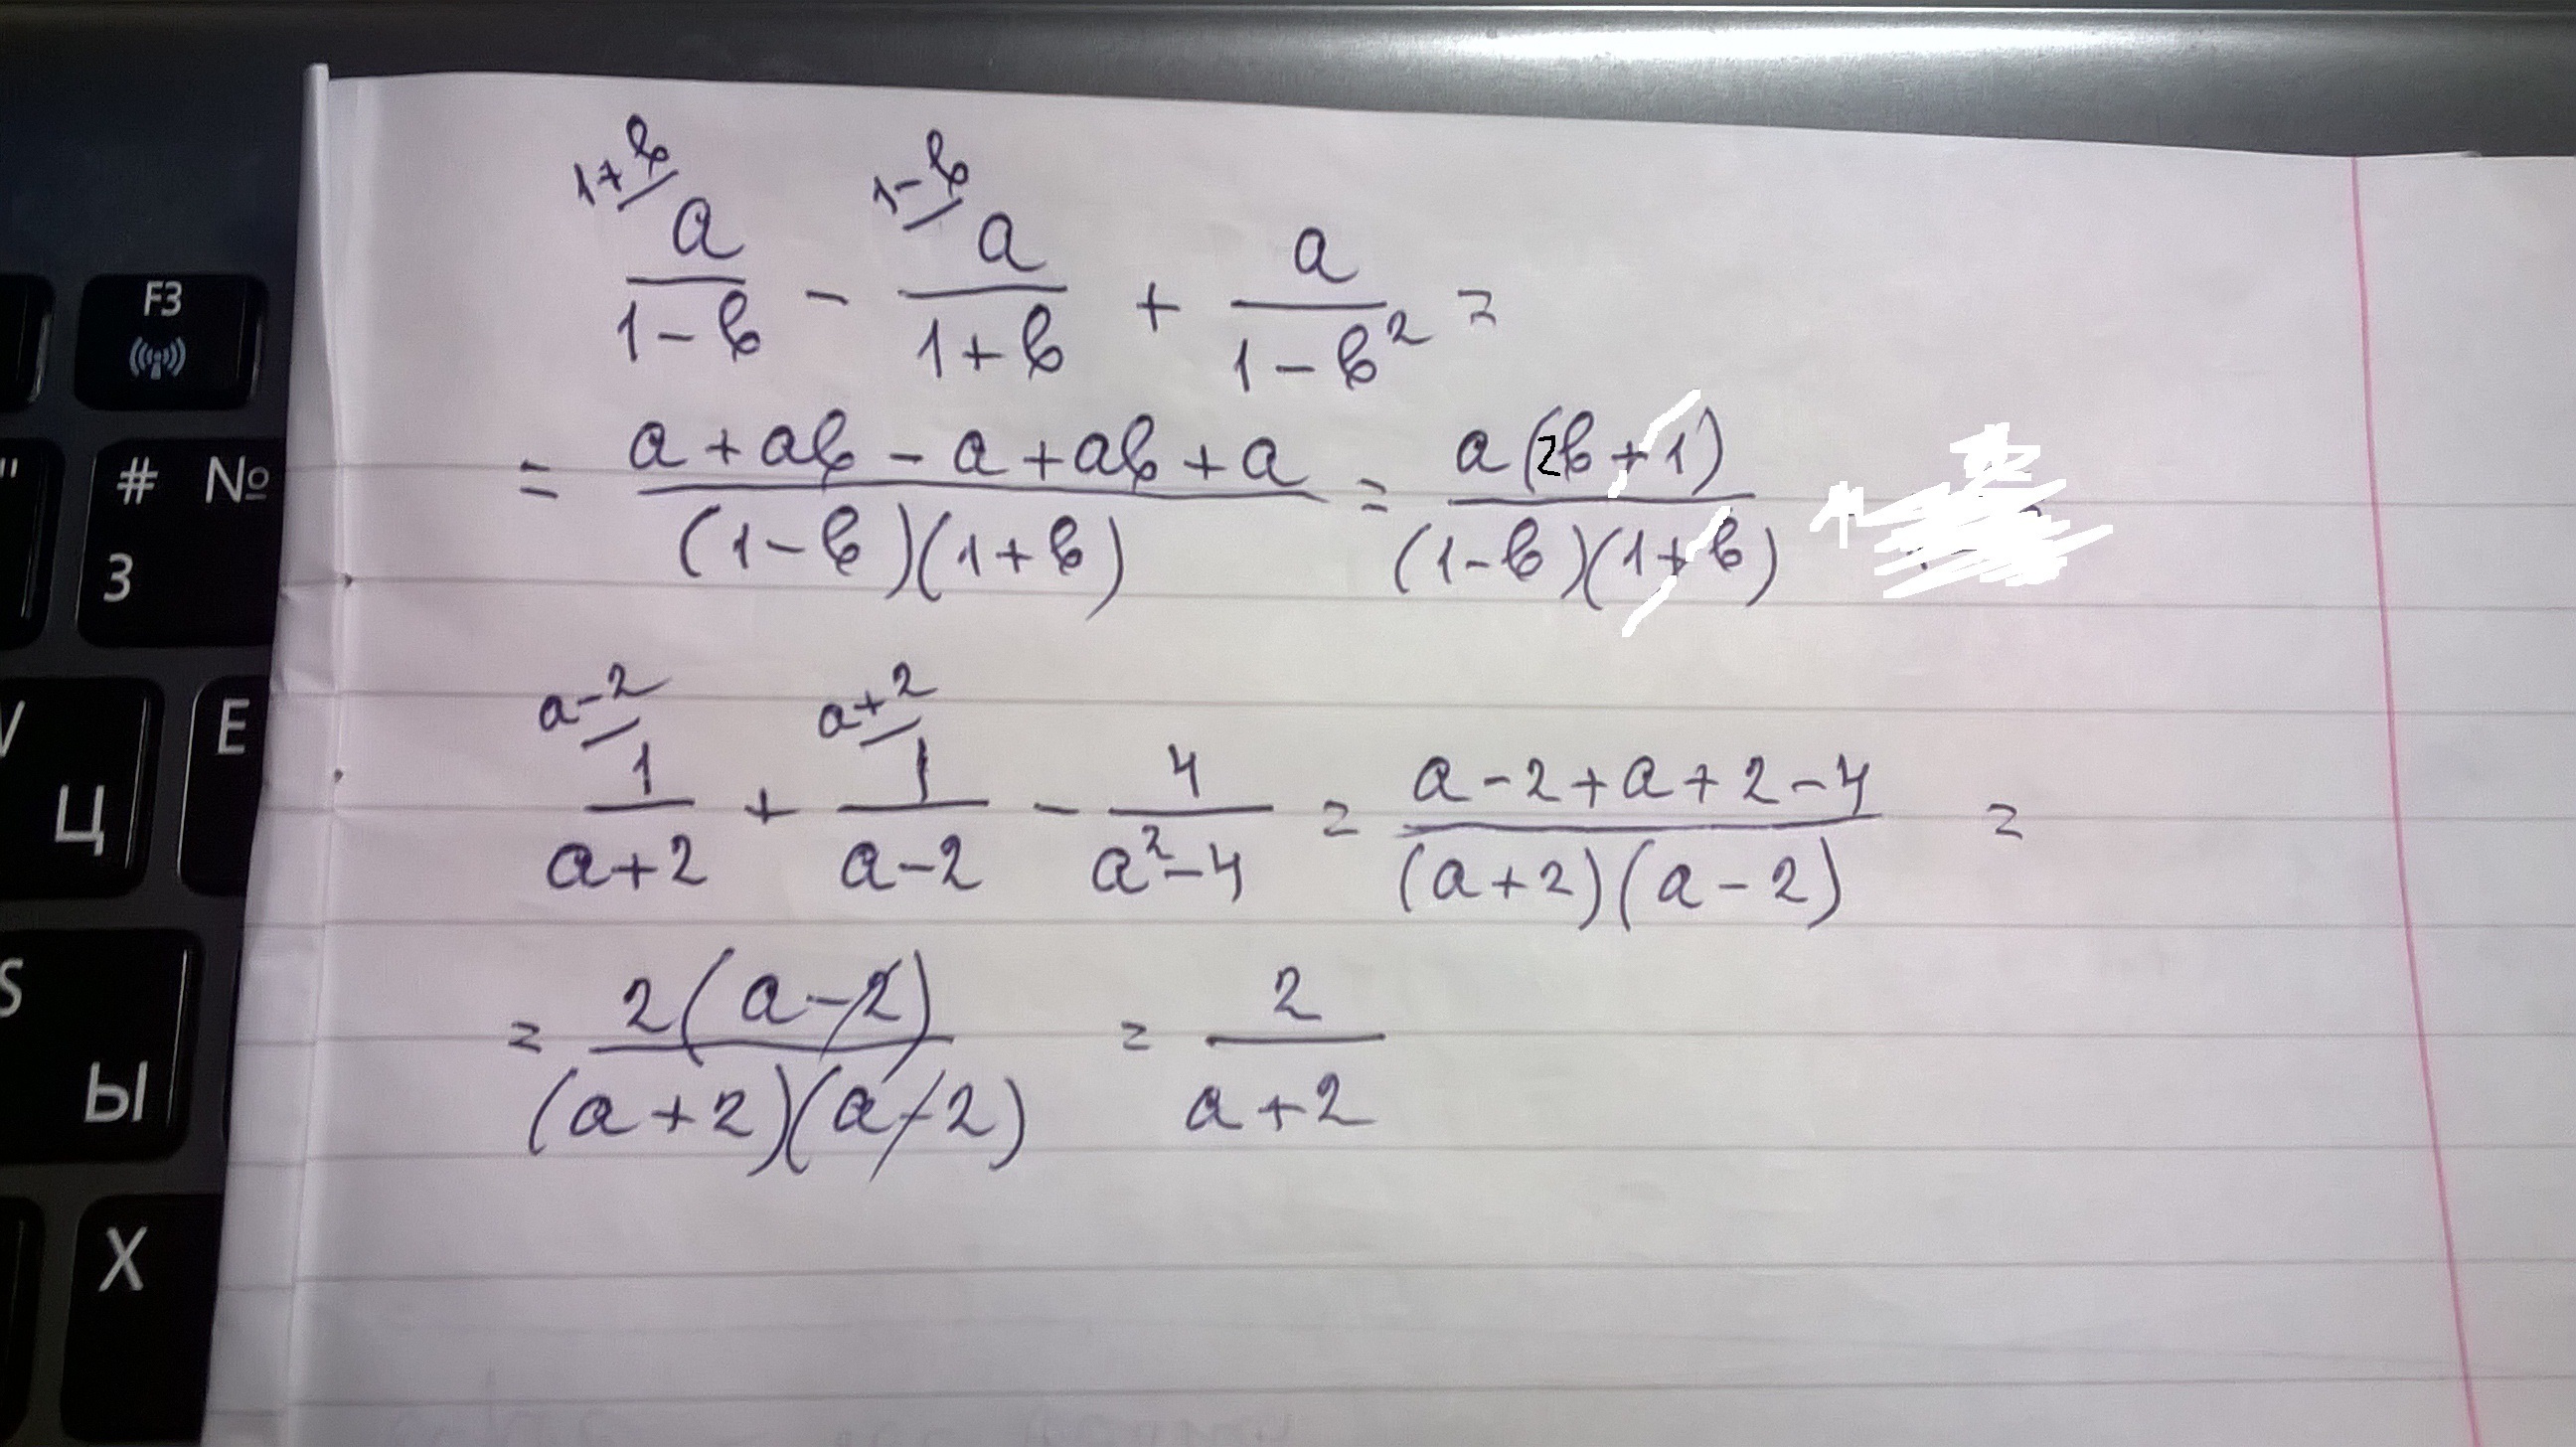 F3
# №
3
Ц
E
S
Ы
X
1+b/ 1-b/
a/(1-b) - a/(1+b) + a/(1-b²) =
= (a+ab-a+ab+a)/((1-b)(1+b)) = a(2b+1)/((1-b)(1+b))
a-2/ a+2/
1/(a+2) + 1/(a-2) - 4/(a²-4) = (a-2+a+2-4)/((a+2)(a-2)) =
= 2(a-2)/((a+2)(a-2)) = 2/(a+2)